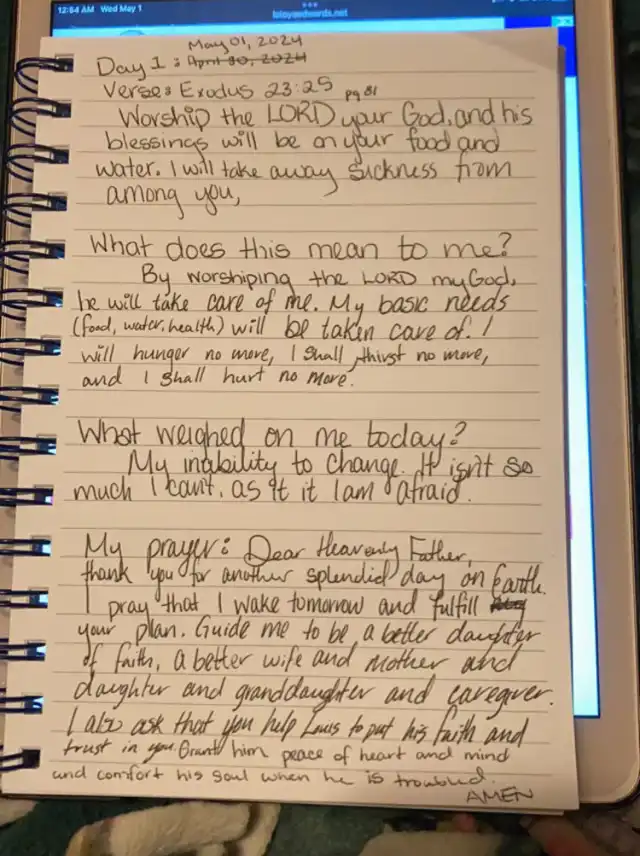 12:54 AM Wed May 1
May 01, 2024
Day 1: April 30, 2024
Verse: Exodus 23:25 pg 81
Worship the LORD your God, and his
blessings will be on your food and
water. I will take away sickness from
among you,
What does this mean to me?
By worshiping the LORD my God,
he will take care of me. My basic needs
(food, water, health) will be taken care of. I
will hunger no more, I shall thirst no more,
and I shall hurt no more.
What weighed on me today?
My inability to change. It isn't so
much I can't, as it it I am afraid.
My prayer: Dear Heavenly Father,
thank you for another splendid day on Earth.
I pray that I wake tomorrow and fulfill
your plan. Guide me to be a better daughter
of faith, a better wife and mother and
daughter and granddaughter and caregiver.
I also ask that you help Louis to put his faith and
trust in you. Grant him peace of heart and mind
and comfort his soul when he is troubled.
AMEN